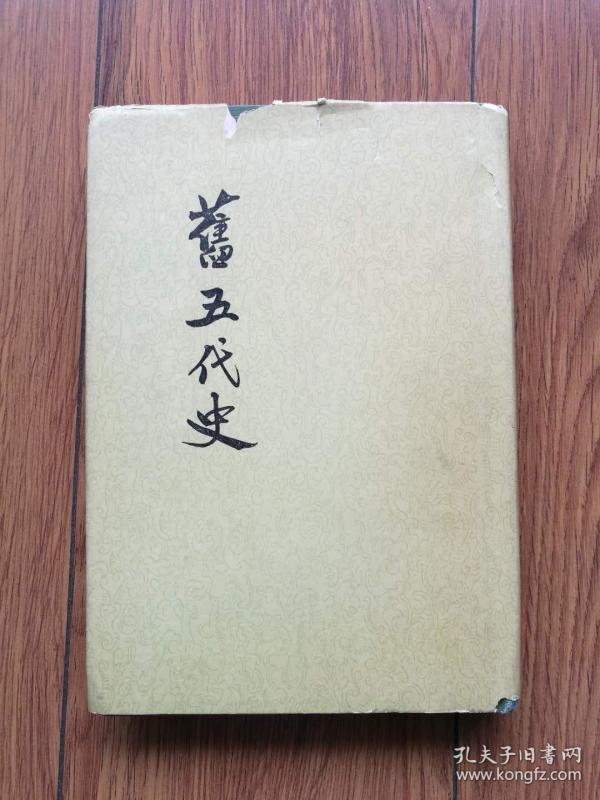 舊五代史
孔夫子旧書网
www.kongfz.com